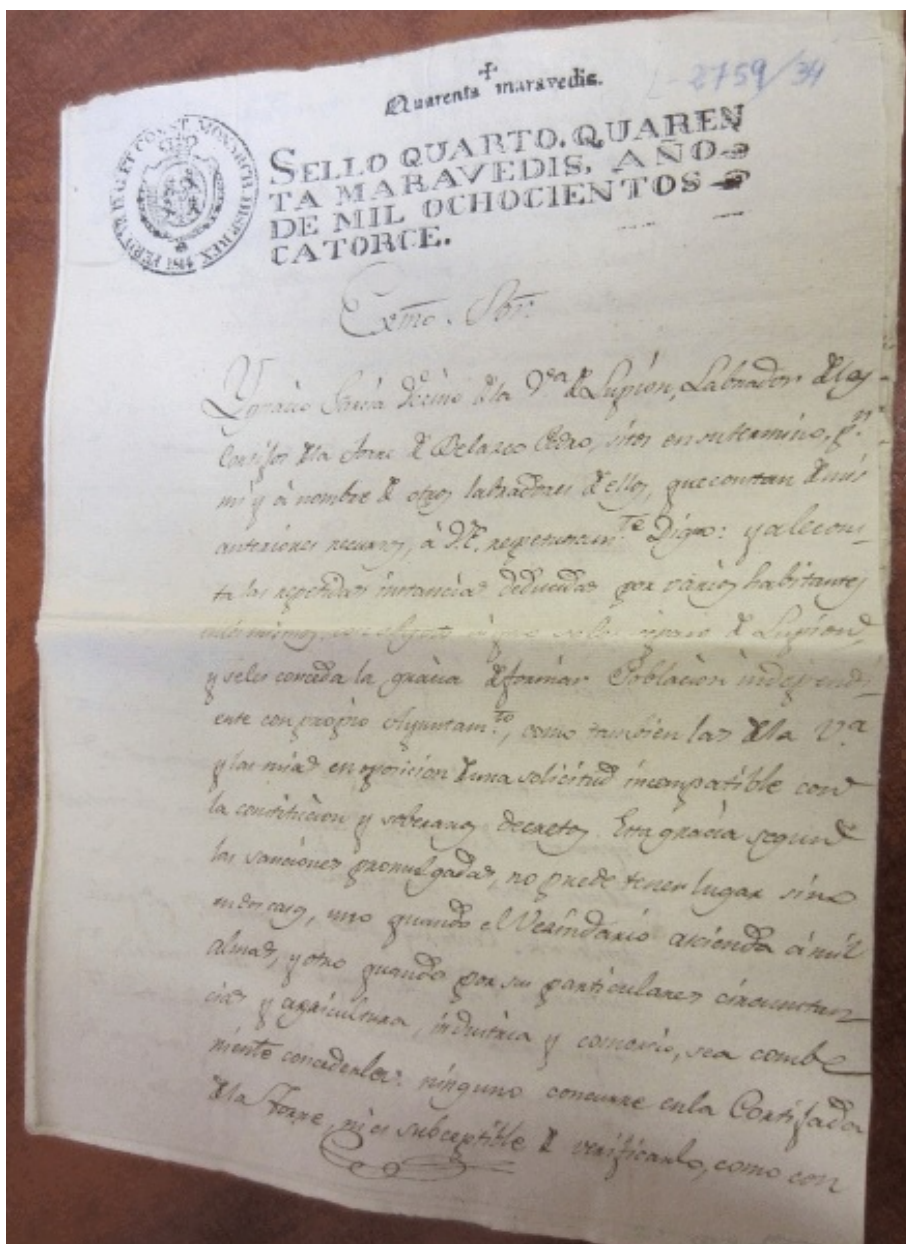 Quarenta maravedis.
L-2759/34
SELLO QUARTO. QUAREN
TA MARAVEDIS, AÑO
DE MIL OCHOCIENTOS
CATORCE.
FERD. VII. D. G. ET CONST. MONARCH. HISP. REX. 1814
Exmo. Sor.
Ygnacio Garcia Vecino dela Va. de Lupion, Labrador delos
Cortijos dela Torre de Pedro, sitos en su termino, pr.
mi y à nombre de otros labradores de ellos, que constan de mis
anteriores recursos, à V.E. respetuosamte. Digo: ya le cons-
ta las repetidas instancias deducidas por varios habitantes
de Lupion,
y seles conceda la gracia de formar Poblacion independi-
ente con propio Ayuntamto., como tambien las dela Va.
y las mias en oposicion de una solicitud incompatible con
la constitucion y soberanos decretos. Esta gracia segun
las sanciones promulgadas, no puede tener lugar sino
en dos casos, uno quando el Vecindario ascienda à mil
almas, y otro quando por sus particulares circunstan
cias y agricultura, industria y comercio, sea combe
niente concederles: ninguno concurre en la Cortijada
dela Torre, ni es subceptible de verificarlo, como con